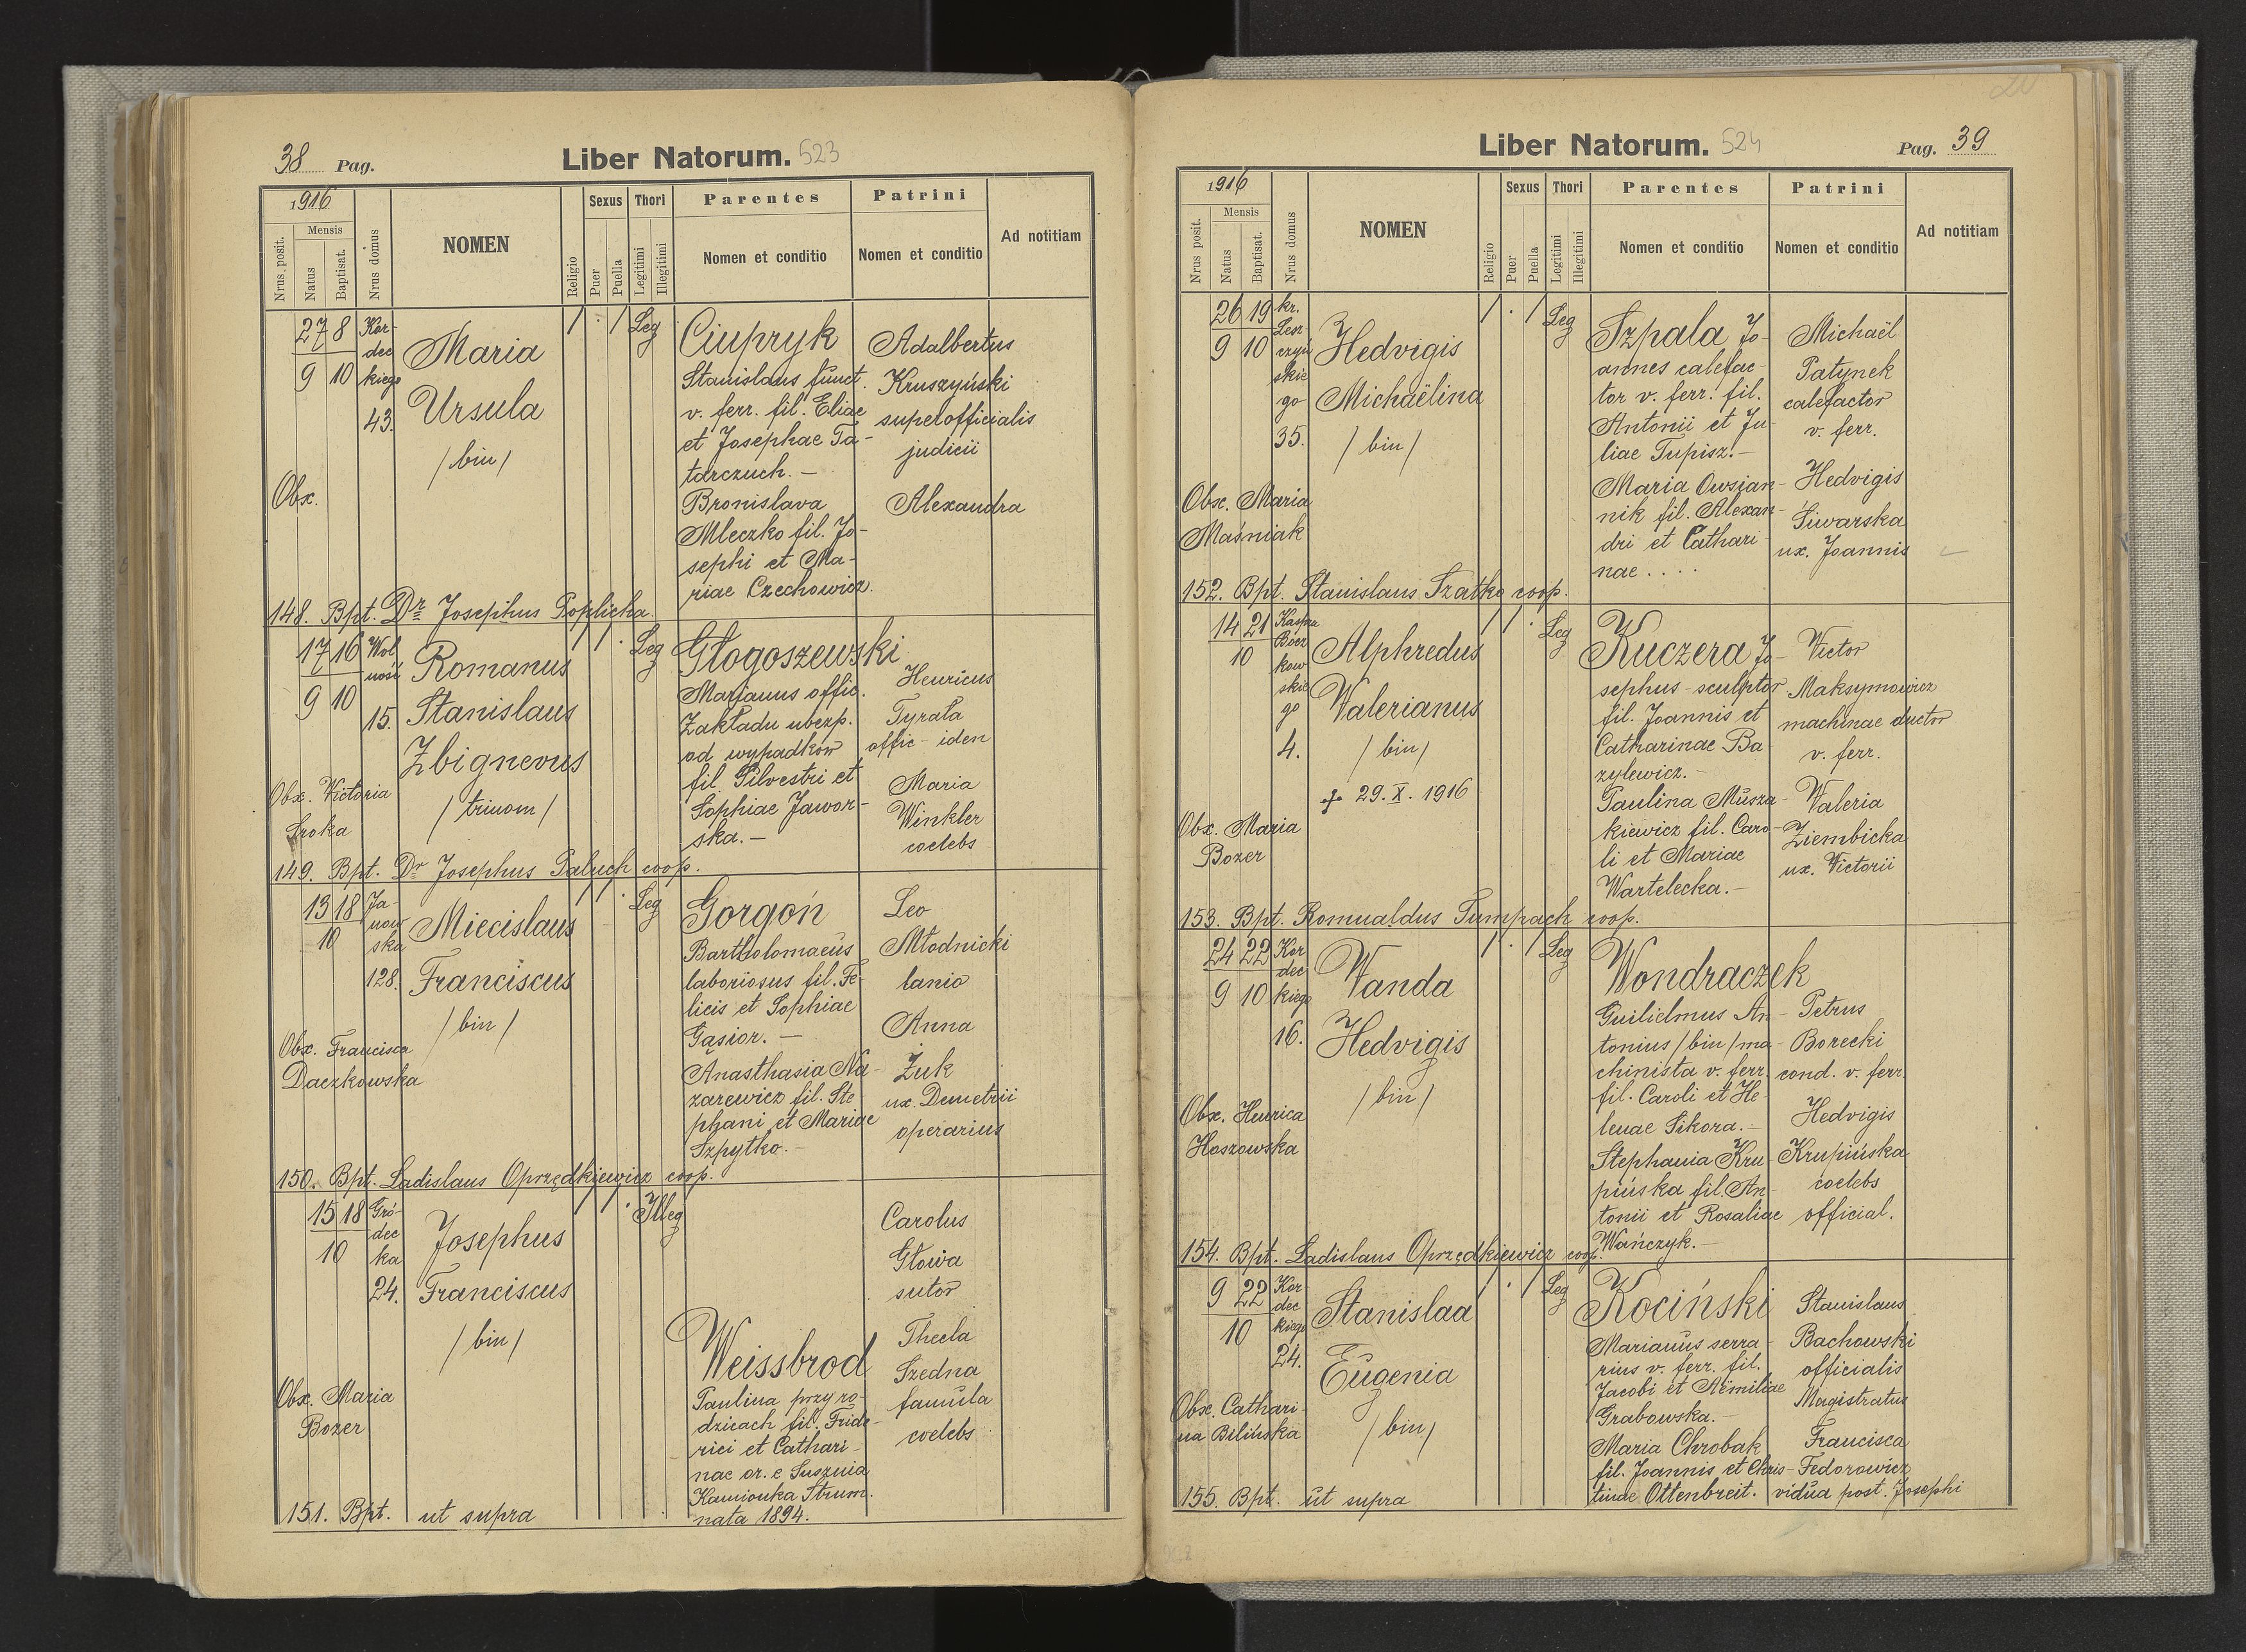 38 Pag.
Liber Natorum. 523
1916
Mensis
Nrus. posit.
Natus
Baptisat.
Nrus domus
NOMEN
Religio
Sexus
Puer
Puella
Thori
Legitimi
Illegitimi
Parentes
Nomen et conditio
Patrini
Nomen et conditio
Ad notitiam
27 8
9 10
Kor-
dec
kiego
43.
Maria
Ursula
/ bin /
Obx.
/ . / Leg
Ciupryk
Stanislaus funct.
v. ferr. fil. Eliae
et Josephae Ta-
tarczuch. –
Bronislava
Mleczko fil. Jo-
sephi et Ma-
riae Czechowicz.
Adalbertus
Kruszyński
superofficialis
judicii
Alexandra
148. Bpt. Dr Josephus Poplicha.
17 16
9 10
Wol
ność
15.
Romanus
Stanislaus
Zbignevus
/ trinom /
Obx. Victoria
Sroka
/ / . Leg
Głogoszewski
Marjanus offic.
Zakładu ubezp.
od wypadków
fil. Silvestri et
Sophiae Jawor-
ska. –
Henricus
Tyrata
offic – iden
Maria
Winkler
coelebs
149. Bpt. Dr Josephus Paluch coop.
13 18
10
Ja-
now
ska
128.
Miecislaus
Franciscus
/ bin /
Obx. Francisca
Daczkowska
/ / . Leg
Gorgoń
Bartholomaeus
laboriosus fil. Fe-
licis et Sophiae
Gąsior. –
Anasthasia Na-
zarewicz fil. Ste
phani et Mariae
Szpytko. –
Leo
Młodnicki
lanio
Anna
Żuk
ux. Demetrii
operarius
150. Bpt. Ladislaus Oprzędkiewicz coop.
15 18
10
Gró-
dec
ka
24.
Josephus
Franciscus
/ bin /
Obx. Maria
Bozer
/ / . Illeg
Weissbrod
Paulina przy ro-
dzicach fil. Fride-
rici et Cathari-
nae or. e Suszuia
Kamionka Strum.
nata 1894.
Carolus
Głowa
sutor
Thecla
Szedna
famula
coelebs
151. Bpt. ut supra
Liber Natorum. 524
Pag. 39
1916
Mensis
Nrus posit.
Natus
Baptisat.
Nrus domus
NOMEN
Religio
Sexus
Puer
Puella
Thori
Legitimi
Illegitimi
Parentes
Nomen et conditio
Patrini
Nomen et conditio
Ad notitiam
26 19
9 10
kr.
Lesz-
czyń
skie
go
35.
Hedvigis
Michaëlina
/ bin /
Obx. Maria
Maśniak
/ . / Leg
Szpala Jo-
annes calefac-
tor v. ferr. fil.
Antonii et Ju-
liae Tupisz. –
Maria Owsian-
nik fil. Alexan-
dri et Cathari-
nae . . . .
Michaël
Patynek
calefactor
v. ferr.
Hedvigis
Siwarska
ux. Joannis
152. Bpt. Stanislaus Szatko coop.
14 21
10
Kaspra
Bocz
kow
skie
go
4.
Alphredus
Valerianus
/ bin /
+ 29. X. 1916
Obx. Maria
Bozer
/ / . Leg
Kuczera Jo-
sephus – sculptor
fil. Joannis et
Catharinae Ba-
zylewicz. –
Paulina Musza-
kiewicz fil. Caro-
li et Mariae
Wartelecka. –
Victor
Maksymowicz
machinae ductor
v. ferr.
Valeria
Ziembicka
ux. Victorii
153. Bpt. Romualdus Tumpach coop.
24 22
9 10
Kor
dec
kiego
16.
Wanda
Hedvigis
/ bin /
Obx. Henrica
Hoszowska
/ . / Leg
Wondraczek
Guilielmus An-
tonius / bin / ma-
chinista v. ferr.
fil. Caroli et He-
lenae Sikora. –
Stephania Kru-
pińska fil. An-
tonii et Rosaliae
Wańczyk. –
Petrus
Borecki
cond. v. ferr.
Hedvigis
Krupińska
coelebs
official.
154. Bpt. Ladislaus Oprzędkiewicz coop.
9 22
10
Kor
dec
kiego
24.
Stanislaa
Eugenia
/ bin /
Obx. Cathari-
na Bilińska
/ . / Leg
Kociński
Marianus serra-
rius v. ferr. fil.
Jacobi et Aemiliae
Grabowska. –
Maria Chrobak
fil. Joannis et Chris-
tinae Ottenbreit.
Stanislaus
Bachowski
officialis
Magistratus
Francisca
Fedorowicz
vidua post. Josephi
155. Bpt. ut supra